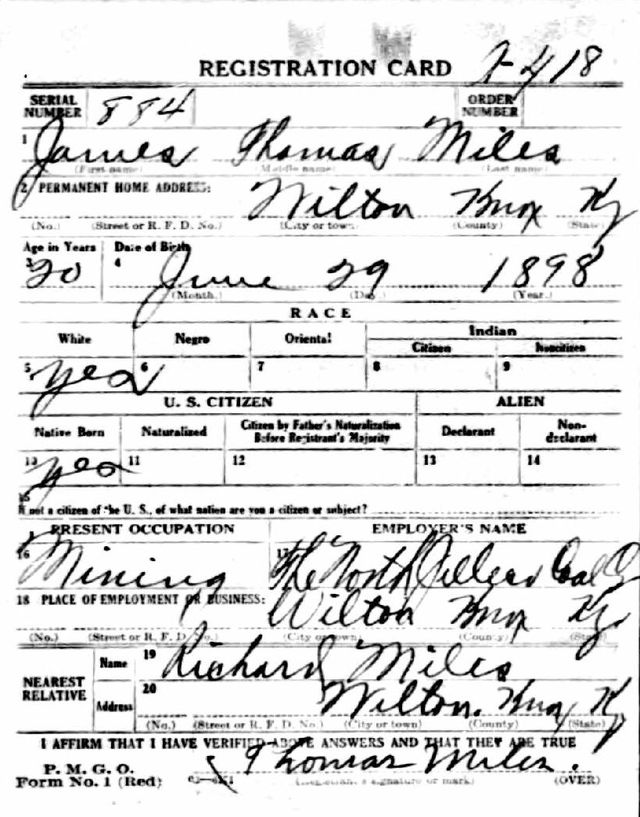 REGISTRATION CARD
SERIAL NUMBER 884 ORDER NUMBER
1 James Thomas Miles
(First name) (Middle name) (Last name)
2 PERMANENT HOME ADDRESS: Wilton Knox Ky
(No.) (Street or R. F. D. No.) (City or town) (County) (State)
Age in Years Date of Birth
3 20 4 June 29 1898
(Month.) (Day.) (Year.)
RACE
White Negro Oriental Indian
Citizen Noncitizen
5 yes 6 7 8 9
U. S. CITIZEN ALIEN
Native Born Naturalized Citizen by Father's Naturalization Before Registrant's Majority Declarant Non-declarant
10 yes 11 12 13 14
15
If not a citizen of the U. S., of what nation are you a citizen or subject?
PRESENT OCCUPATION EMPLOYER'S NAME
16 Mining 17 The North Jellico Coal Co
18 PLACE OF EMPLOYMENT OR BUSINESS: Wilton Knox Ky
(No.) (Street or R. F. D. No.) (City or town) (County) (State)
NEAREST RELATIVE Name 19 Richard Miles
Address 20 Wilton. Knox Ky
(No.) (Street or R. F. D. No.) (City or town) (County) (State)
I AFFIRM THAT I HAVE VERIFIED ABOVE ANSWERS AND THAT THEY ARE TRUE
P. M. G. O.
Form No. 1 (Red) Thomas Miles.
(Registrant's signature or mark) (OVER)